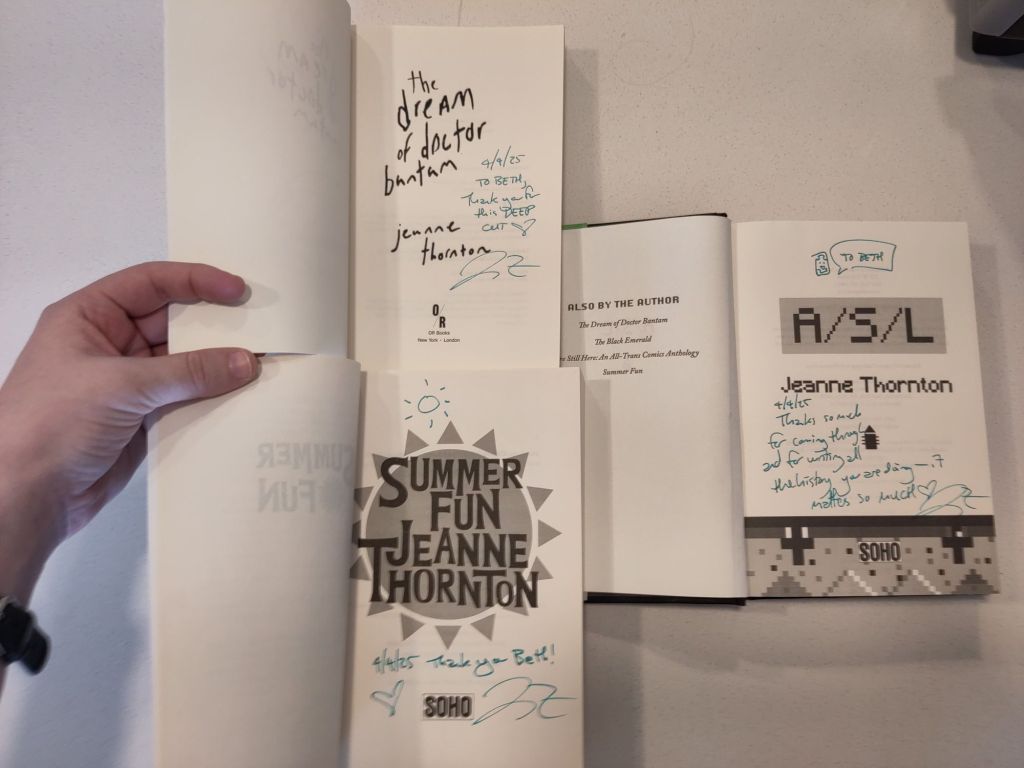 the
dream
of doctor
bantam
4/4/25
TO BETH,
Thank you for
this DEEP
CUT
jeanne
thornton
O/R
OR Books
New York • London
SUMMER
FUN
JEANNE
THORNTON
4/4/25 Thank you Beth!
SOHO
ALSO BY THE AUTHOR
The Dream of Doctor Bantam
The Black Emerald
re Still Here: An All-Trans Comics Anthology
Summer Fun
TO BETH
A/S/L
Jeanne Thornton
4/4/25
Thanks so much
for coming through
and for writing all
the history you are doing —
matters so much
SOHO